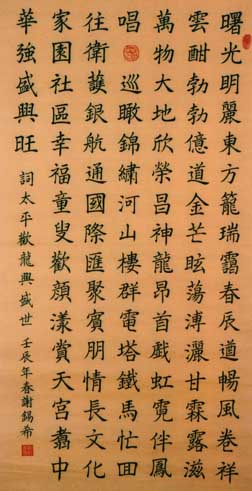 曙光明麗東方籠瑞靄春辰道暢風卷祥
雲酣勃勃億道金芒眩蕩漙灑甘霖露滋
萬物大地欣榮昌神龍昂首戲虹霓伴鳳
唱 巡瞰錦繡河山樓群電塔鐵馬忙回
往衛護銀航通國際匯聚賓朋情長文化
家園社區幸福童叟歡顏漾賞天宮翥中
華強盛興旺 詞太平歡龍興盛世 壬辰年春謝錫希